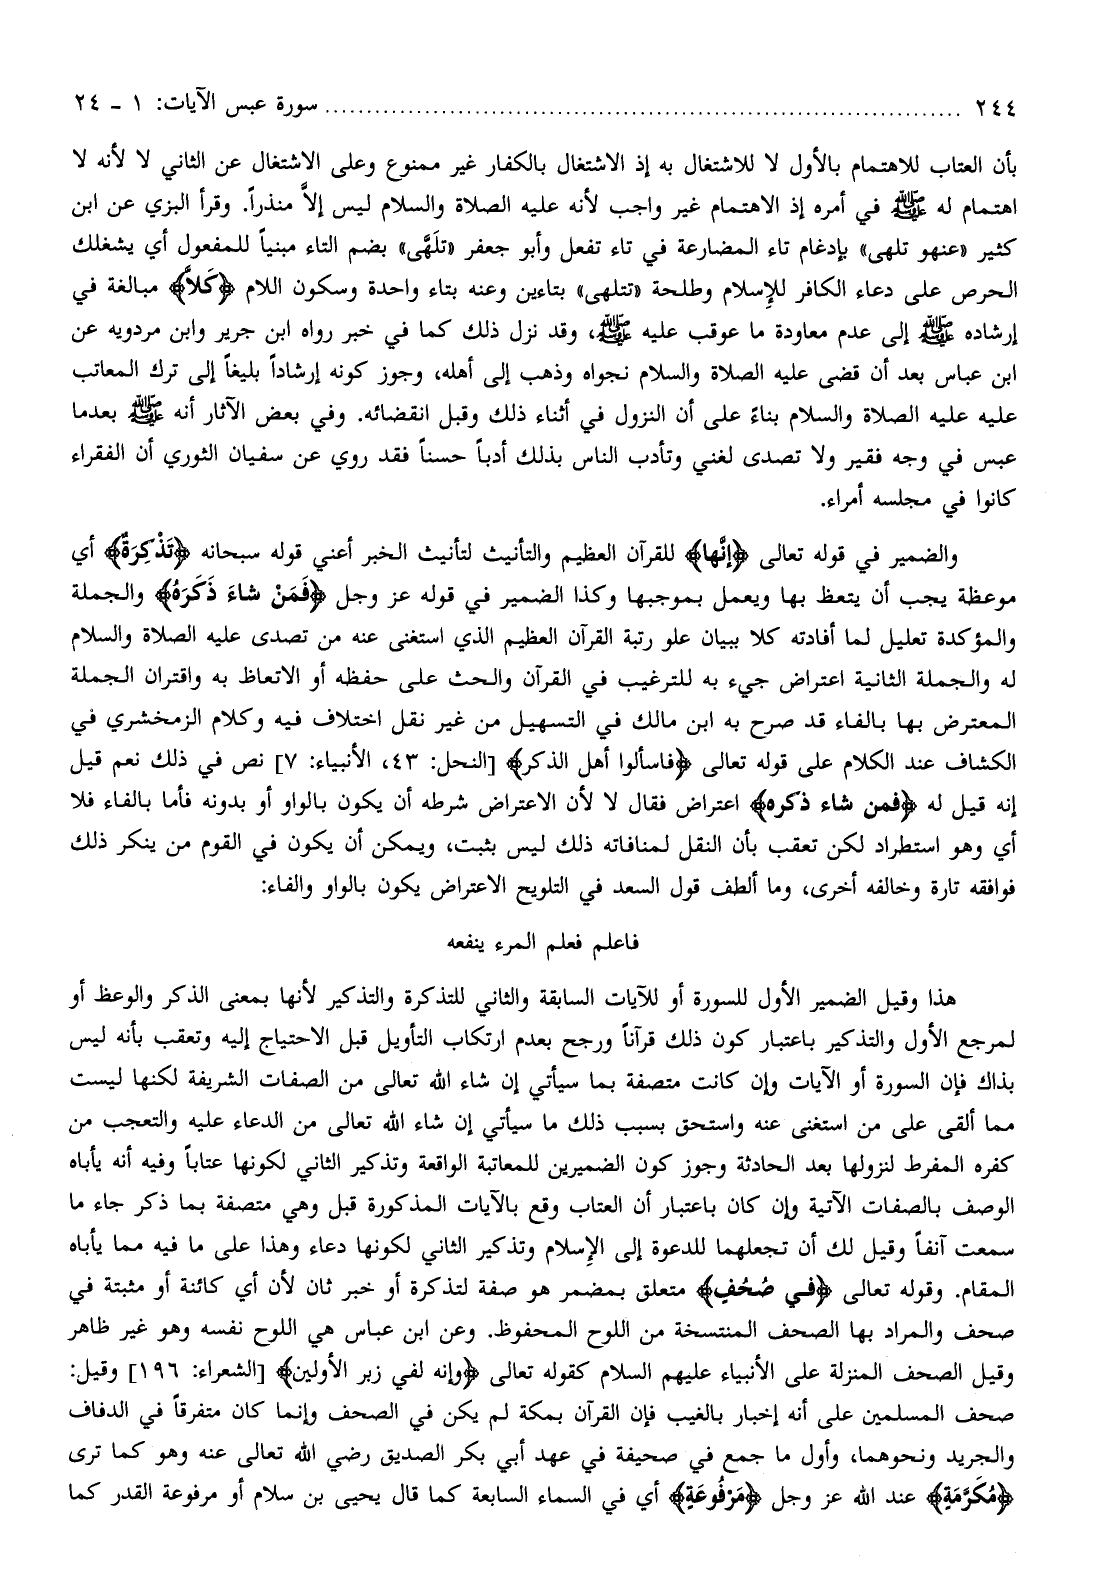 ٢٤٤ ........................................ سورة عبس الآيات: ١ - ٢٤
بأن العتاب للاهتمام بالأول لا للاشتغال به إذ الاشتغال بالكفار غير ممنوع وعلى الاشتغال عن الثاني لا لأنه لا
اهتمام له ﷺ في أمره إذ الاهتمام غير واجب لأنه عليه الصلاة والسلام ليس إلاَّ منذراً. وقرأ البزي عن ابن
كثير «عنهو تلهى» بإدغام تاء المضارعة في تاء تفعل وأبو جعفر «تلَهَّى» بضم التاء مبنياً للمفعول أي يشغلك
الحرص على دعاء الكافر للإسلام وطلحة «تتلهى» بتاءين وعنه بتاء واحدة وسكون اللام ﴿كَلاَّ﴾ مبالغة في
إرشاده ﷺ إلى عدم معاودة ما عوقب عليه ﷺ، وقد نزل ذلك كما في خبر رواه ابن جرير وابن مردويه عن
ابن عباس بعد أن قضى عليه الصلاة والسلام نجواه وذهب إلى أهله، وجوز كونه إرشاداً بليغاً إلى ترك المعاتب
عليه عليه الصلاة والسلام بناءً على أن النزول في أثناء ذلك وقبل انقضائه. وفي بعض الآثار أنه ﷺ بعدما
عبس في وجه فقير ولا تصدى لغني وتأدب الناس بذلك أدباً حسناً فقد روي عن سفيان الثوري أن الفقراء
كانوا في مجلسه أمراء.
والضمير في قوله تعالى ﴿إنَّها﴾ للقرآن العظيم والتأنيث لتأنيث الخبر أعني قوله سبحانه ﴿تَذْكِرَةٌ﴾ أي
موعظة يجب أن يتعظ بها ويعمل بموجبها وكذا الضمير في قوله عز وجل ﴿فَمَنْ شاءَ ذَكَرَهُ﴾ والجملة
والمؤكدة تعليل لما أفادته كلا ببيان علو رتبة القرآن العظيم الذي استغنى عنه من تصدى عليه الصلاة والسلام
له والجملة الثانية اعتراض جيء به للترغيب في القرآن والحث على حفظه أو الاتعاظ به واقتران الجملة
المعترض بها بالفاء قد صرح به ابن مالك في التسهيل من غير نقل اختلاف فيه وكلام الزمخشري في
الكشاف عند الكلام على قوله تعالى ﴿فاسألوا أهل الذكر﴾ [النحل: ٤٣، الأنبياء: ٧] نص في ذلك نعم قيل
إنه قيل له ﴿فمن شاء ذكره﴾ اعتراض فقال لا لأن الاعتراض شرطه أن يكون بالواو أو بدونه فأما بالفاء فلا
أي وهو استطراد لكن تعقب بأن النقل لمنافاته ذلك ليس بثبت، ويمكن أن يكون في القوم من ينكر ذلك
فوافقه تارة وخالفه أخرى، وما ألطف قول السعد في التلويح الاعتراض يكون بالواو والفاء:
فاعلم فعلم المرء ينفعه
هذا وقيل الضمير الأول للسورة أو للآيات السابقة والثاني للتذكرة والتذكير لأنها بمعنى الذكر والوعظ أو
لمرجع الأول والتذكير باعتبار كون ذلك قرآناً ورجح بعدم ارتكاب التأويل قبل الاحتياج إليه وتعقب بأنه ليس
بذاك فإن السورة أو الآيات وإن كانت متصفة بما سيأتي إن شاء الله تعالى من الصفات الشريفة لكنها ليست
مما ألقى على من استغنى عنه واستحق بسبب ذلك ما سيأتي إن شاء الله تعالى من الدعاء عليه والتعجب من
كفره المفرط لنزولها بعد الحادثة وجوز كون الضميرين للمعاتبة الواقعة وتذكير الثاني لكونها عتاباً وفيه أنه يأباه
الوصف بالصفات الآتية وإن كان باعتبار أن العتاب وقع بالآيات المذكورة قبل وهي متصفة بما ذكر جاء ما
سمعت آنفاً وقيل لك أن تجعلهما للدعوة إلى الإسلام وتذكير الثاني لكونها دعاء وهذا على ما فيه مما يأباه
المقام. وقوله تعالى ﴿في صُحُفٍ﴾ متعلق بمضمر هو صفة لتذكرة أو خبر ثان لأن أي كائنة أو مثبتة في
صحف والمراد بها الصحف المنتسخة من اللوح المحفوظ. وعن ابن عباس هي اللوح نفسه وهو غير ظاهر
وقيل الصحف المنزلة على الأنبياء عليهم السلام كقوله تعالى ﴿وإنه لفي زبر الأولين﴾ [الشعراء: ١٩٦] وقيل:
صحف المسلمين على أنه إخبار بالغيب فإن القرآن بمكة لم يكن في الصحف وإنما كان متفرقاً في الدفاف
والجريد ونحوهما، وأول ما جمع في صحيفة في عهد أبي بكر الصديق رضي الله تعالى عنه وهو كما ترى
﴿مُكَرَّمَةٍ﴾ عند الله عز وجل ﴿مَرْفُوعَةٍ﴾ أي في السماء السابعة كما قال يحيى بن سلام أو مرفوعة القدر كما